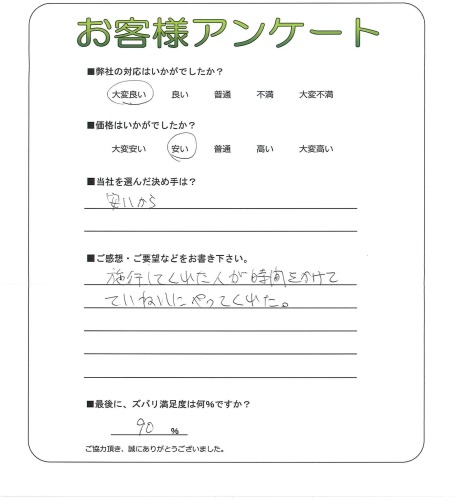 お客様アンケート
■弊社の対応はいかがでしたか?
大変良い 良い 普通 不満 大変不満
■価格はいかがでしたか?
大変安い 安い 普通 高い 大変高い
■当社を選んだ決め手は?
安いから
■ご感想・ご要望などをお書き下さい。
施行してくれた人が時間をかけて
ていねいにやってくれた。
■最後に、ズバリ満足度は何%ですか?
90 %
ご協力頂き、誠にありがとうございました。